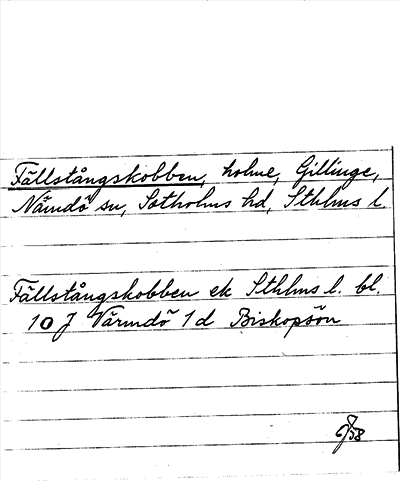 Fällstångskobben, holme, Gillinge,
Nämdö sn, Sotholms hd, Sthlms l.
Fällstångskobben ek Sthlms l. bl.
10 J Värmdö 1 d Biskopsön